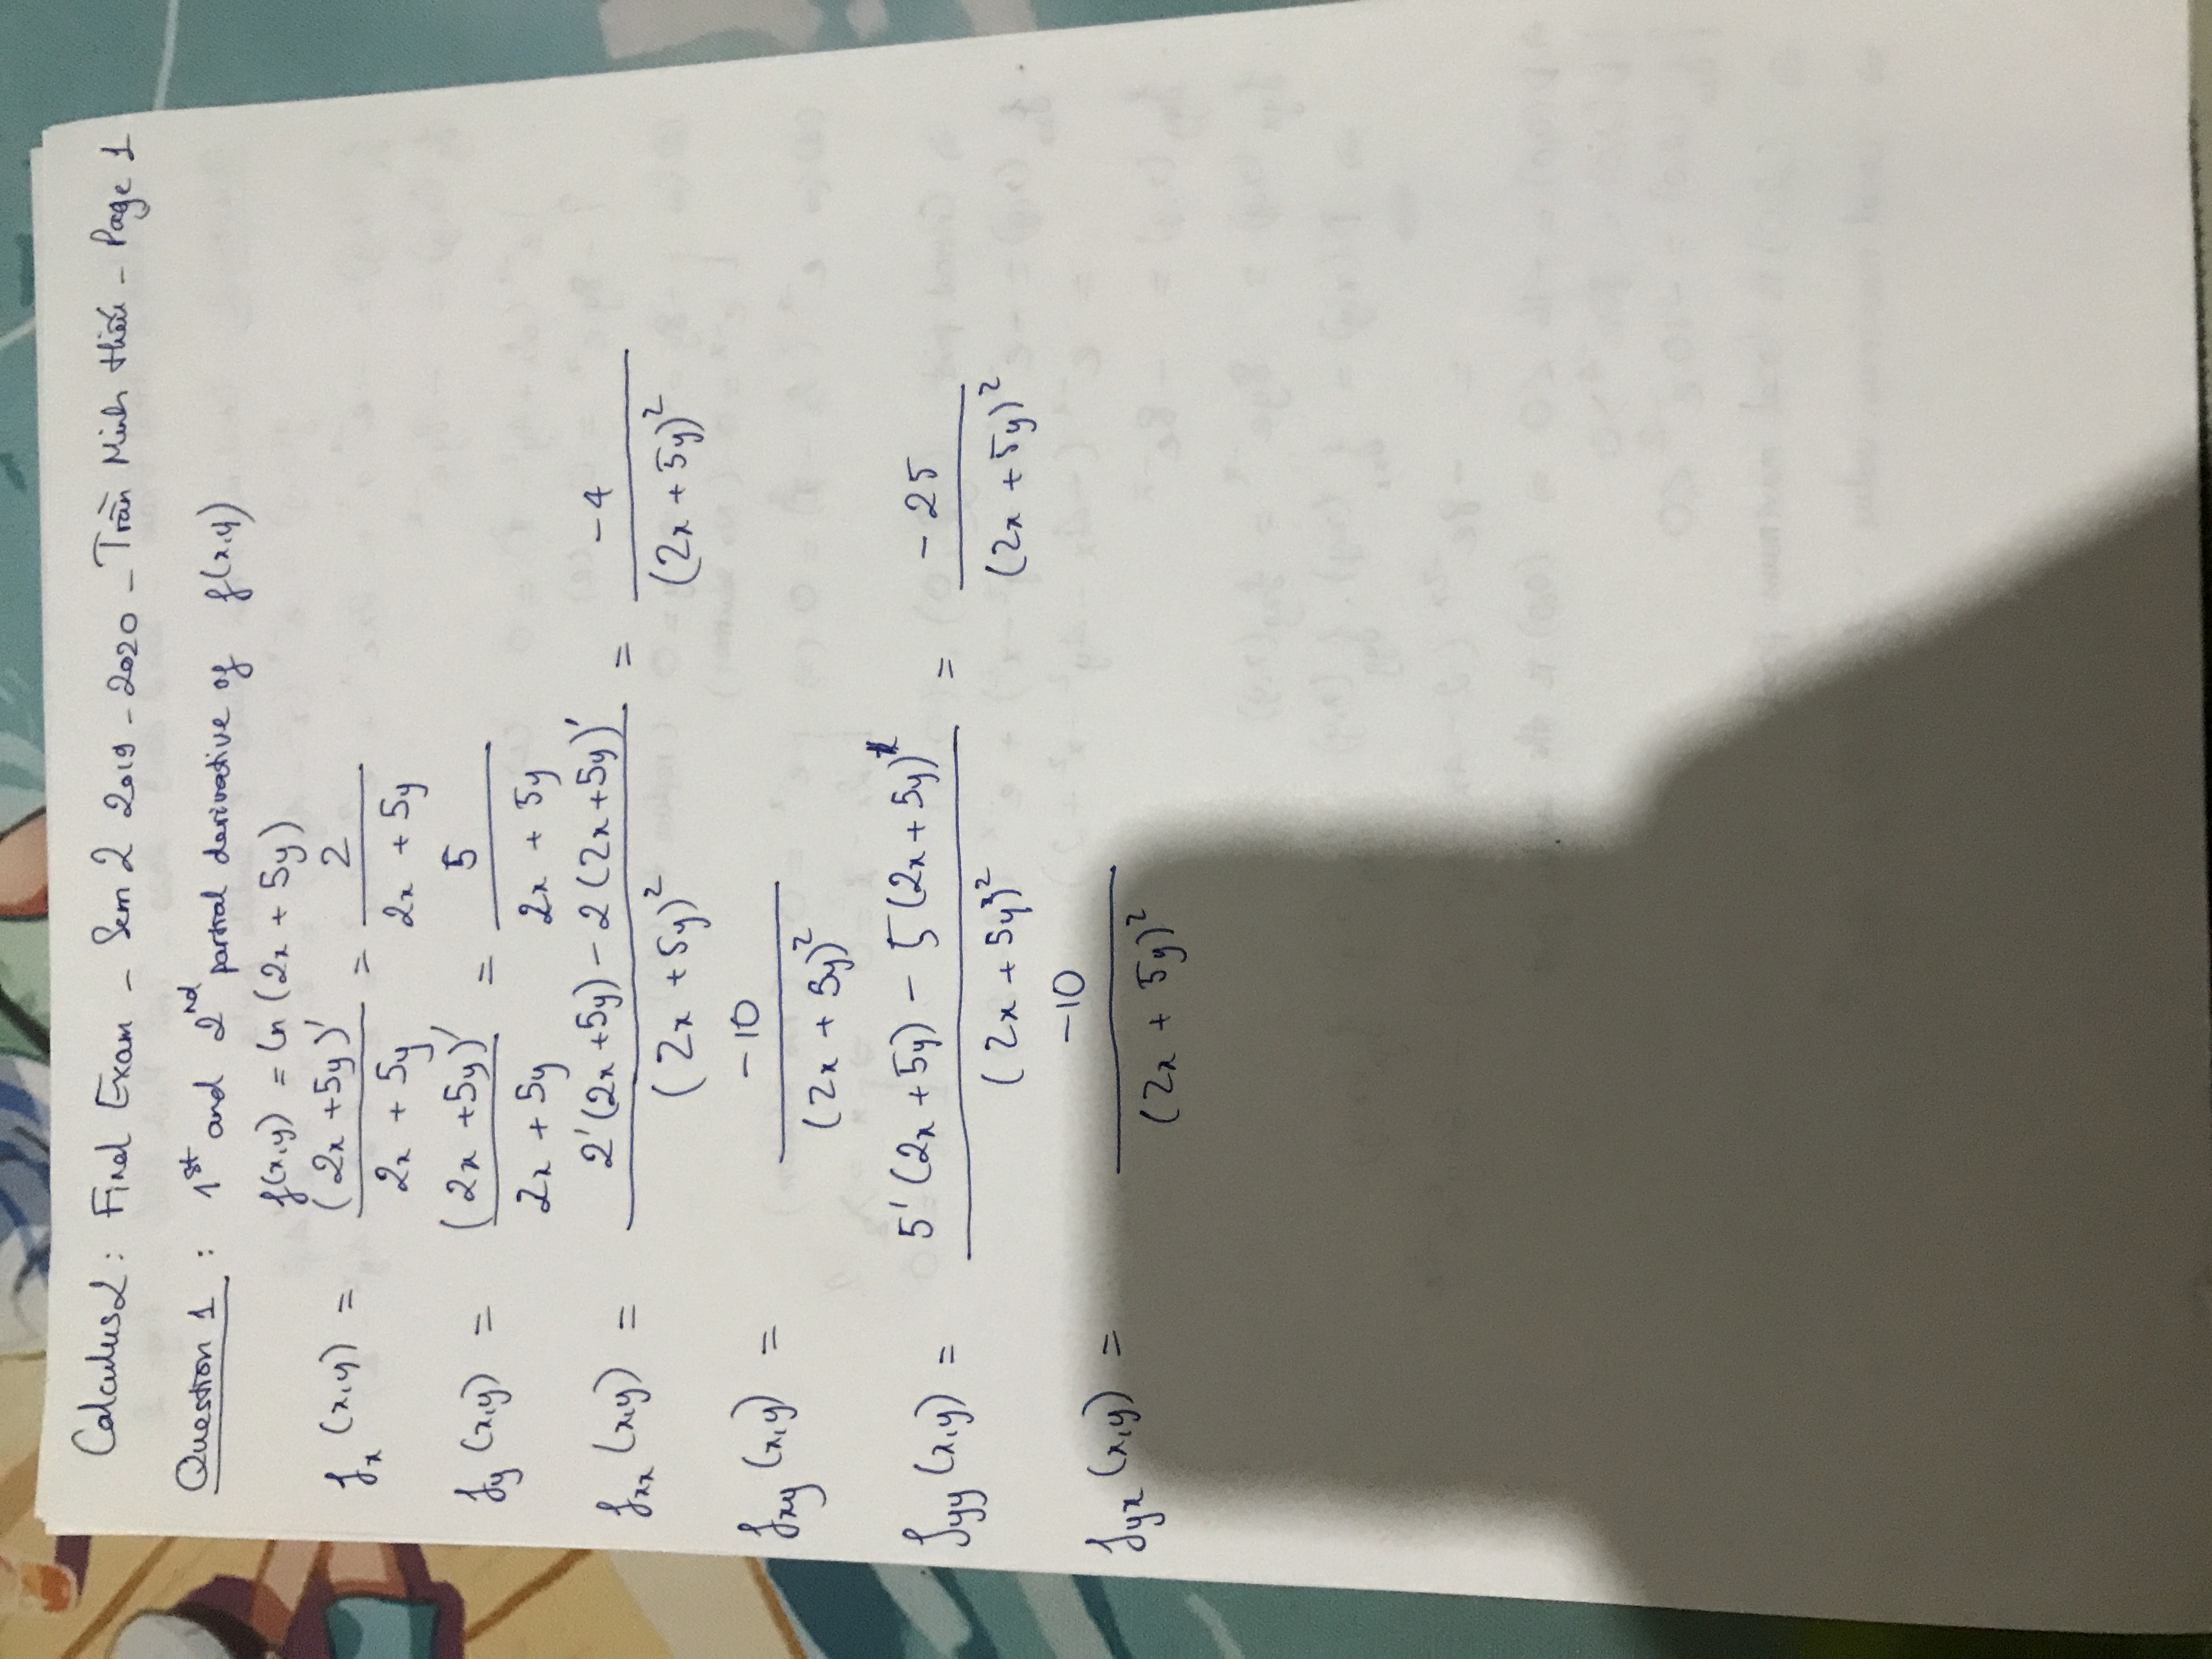 Calculus 2 : Final Exam - Sem 2 2019 - 2020 - Trần Minh Hiếu - Page 1
Question 1 : 1st and 2nd partial derivative of f(x,y)
f(x,y) = ln (2x + 5y)
fx (x,y) = (2x + 5y)' / (2x + 5y) = 2 / (2x + 5y)
fy (x,y) = (2x + 5y)' / (2x + 5y) = 5 / (2x + 5y)
fxx (x,y) = (2'(2x + 5y) - 2(2x + 5y)') / (2x + 5y)² = -4 / (2x + 5y)²
fxy (x,y) = -10 / (2x + 5y)²
fyy (x,y) = (5'(2x + 5y) - 5(2x + 5y)') / (2x + 5y)² = -25 / (2x + 5y)²
fyx (x,y) = -10 / (2x + 5y)²